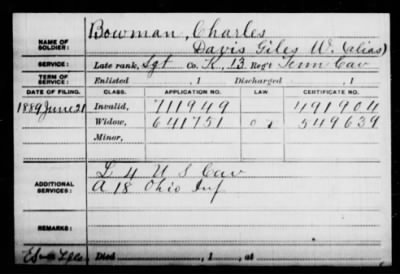 NAME OF SOLDIER: Bowman, Charles
Davis Giles W. (alias)
SERVICE: Late rank, Sgt Co. K, 13 Reg't Tenn Cav
TERM OF SERVICE: Enlisted , 1 Discharged , 1
DATE OF FILING. CLASS. APPLICATION NO. LAW. CERTIFICATE NO.
1889 June 21 Invalid, 711949 491904
Widow, 641751 549639
Minor,
ADDITIONAL SERVICES: L 4 U S Cav
A 18 Ohio Inf
REMARKS:
Died , 1 , at